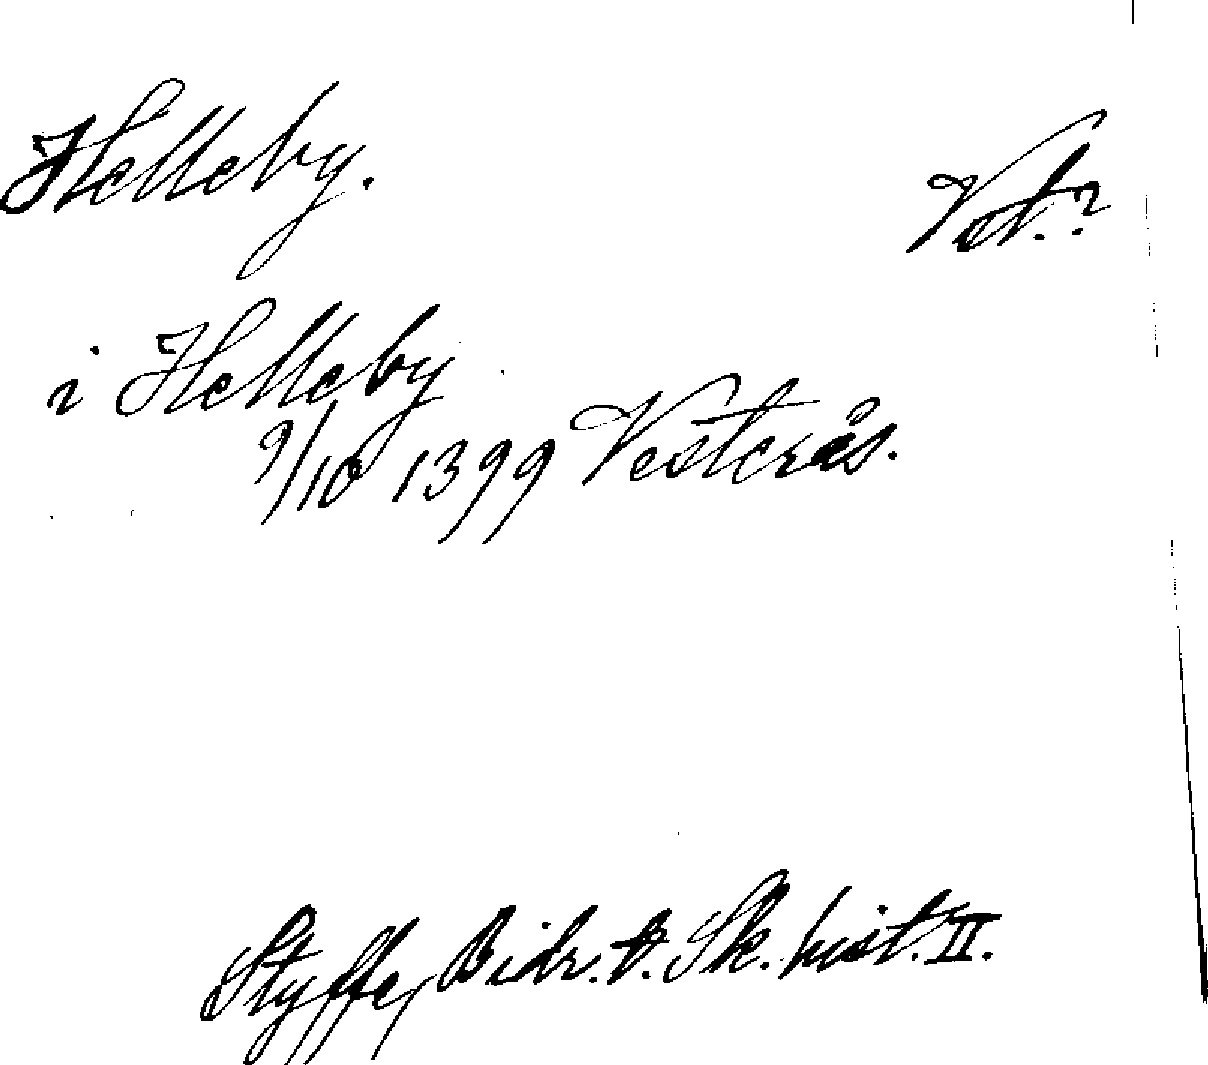 Helleby. Vst.?
i Helleby
9/10 1399 Vesterås.
Styffe, Bidr. t. Sk. hist. II.